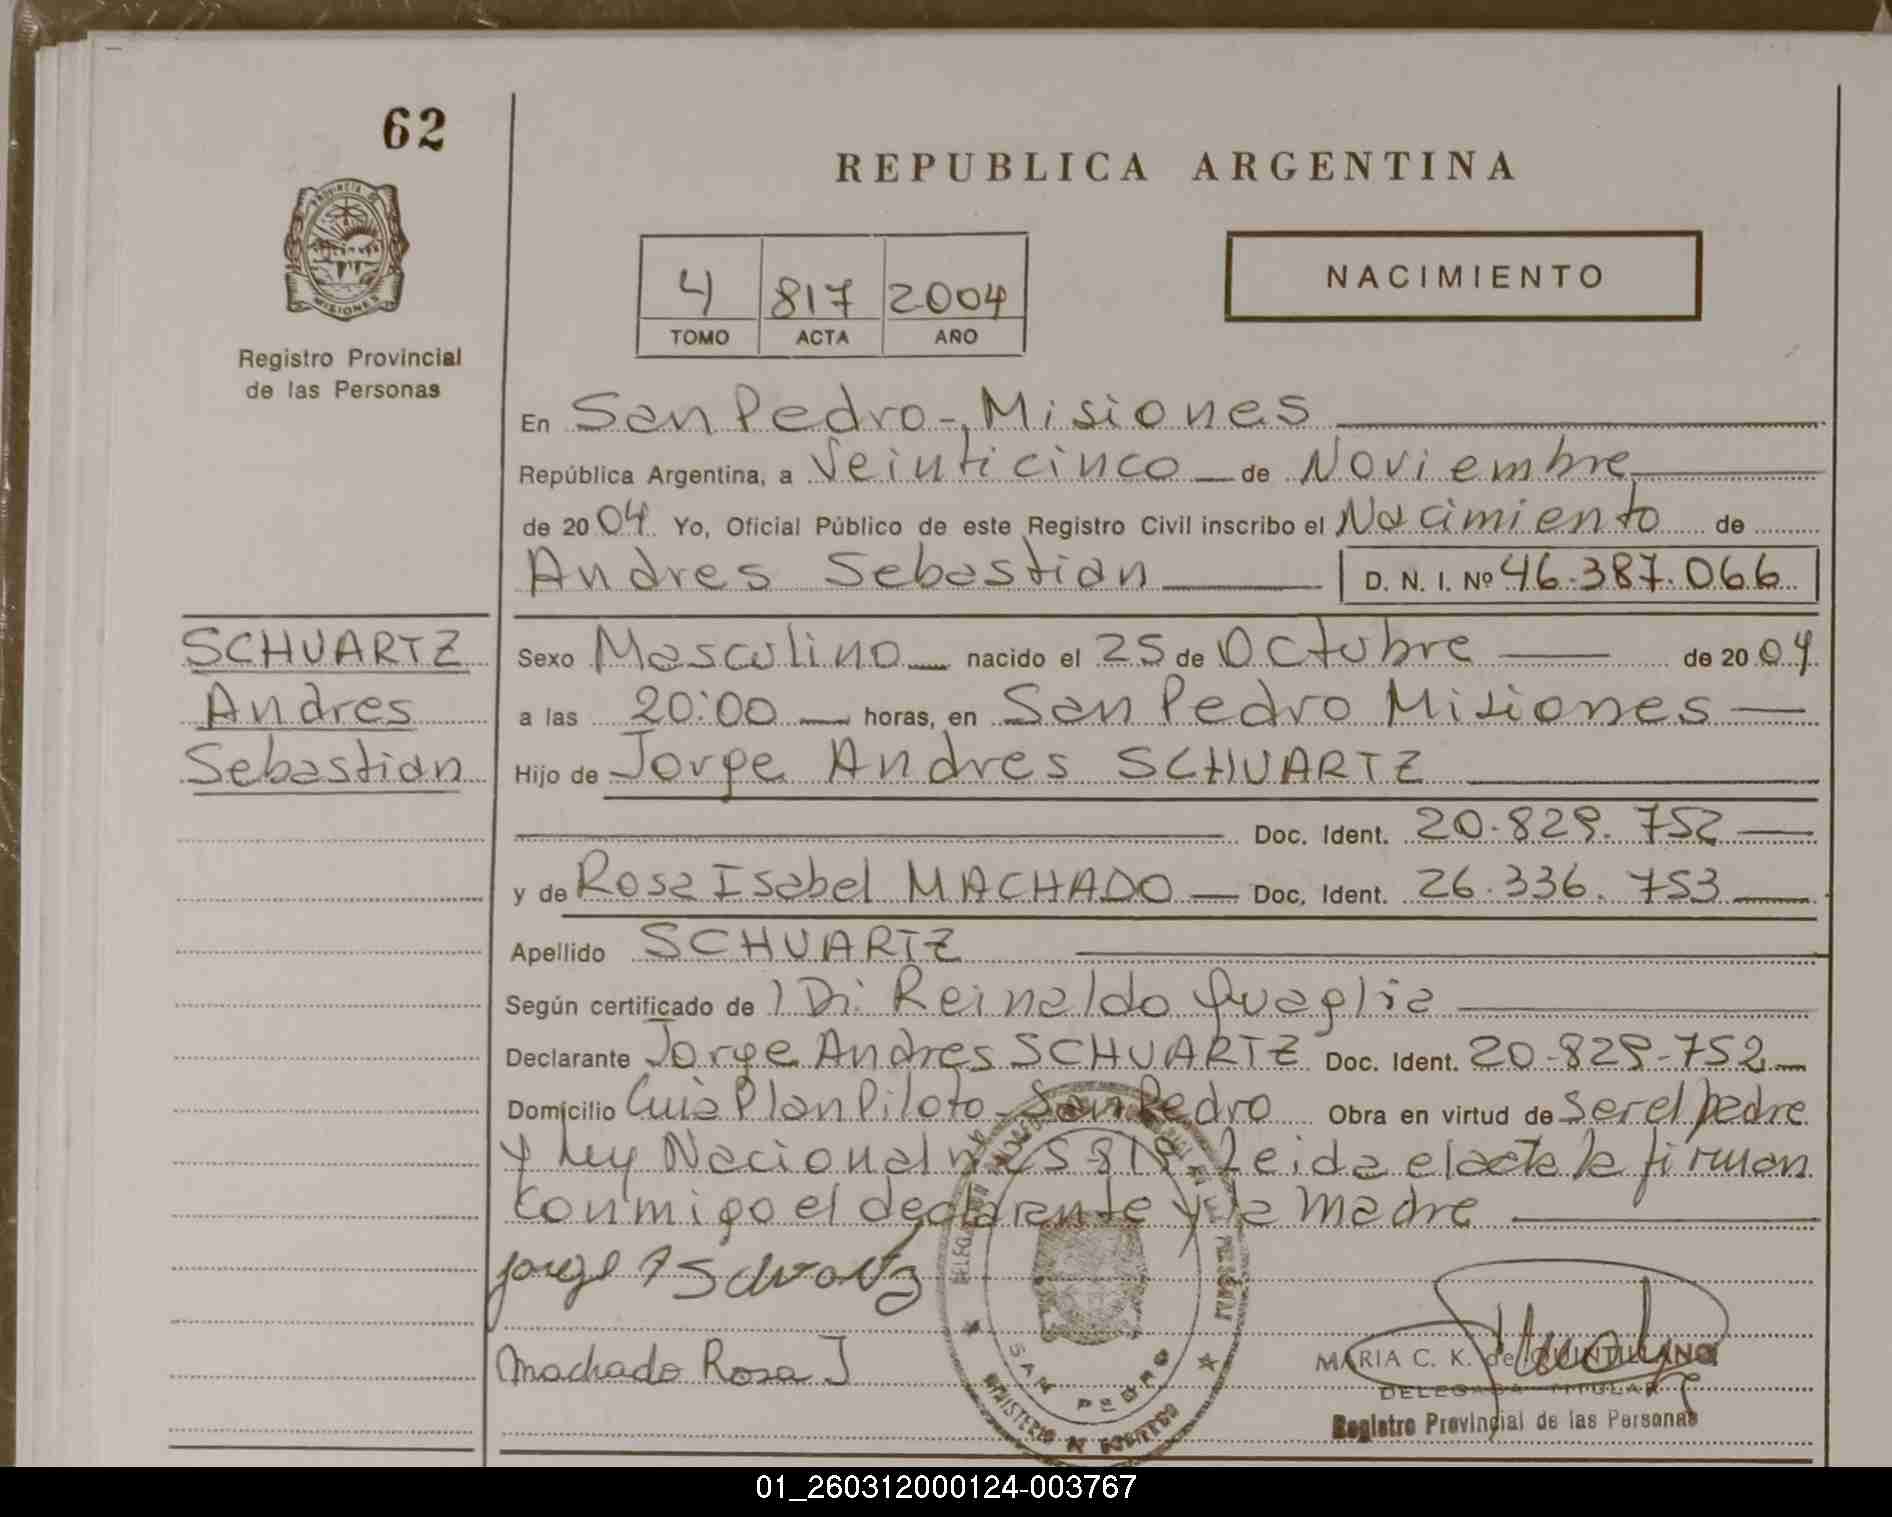 62
REPUBLICA ARGENTINA
PROVINCIA DE
MISIONES
Registro Provincial
de las Personas
4 817 2004
TOMO ACTA AÑO
NACIMIENTO
En San Pedro - Misiones
República Argentina, a Veinticinco de Noviembre
de 2004 Yo, Oficial Público de este Registro Civil inscribo el Nacimiento de
Andres Sebastian D. N. I. Nº 46.387.066
SCHUARTZ
Andres
Sebastian
Sexo Masculino nacido el 25 de Octubre de 2004
a las 20:00 horas, en San Pedro Misiones
Hijo de Jorge Andres SCHUARTZ
Doc. Ident. 20.829.752
y de Rosa Isabel MACHADO Doc. Ident. 26.336.753
Apellido SCHUARTZ
Según certificado de Reinaldo Quaglia
Declarante Jorge Andres SCHUARTZ Doc. Ident. 20.829.752
Domicilio Plan Piloto - San Pedro Obra en virtud de ser el padre
y ley Nacional Leida el acta la firman
conmigo el declarante y la madre
Jorge A Schvartz
Machado Rosa I
SAN PEDRO
MINISTERIO DE GOBIERNO
MARIA C. K. de QUINTILLANO
DELEGADA TITULAR
Registro Provincial de las Personas
01_260312000124-003767